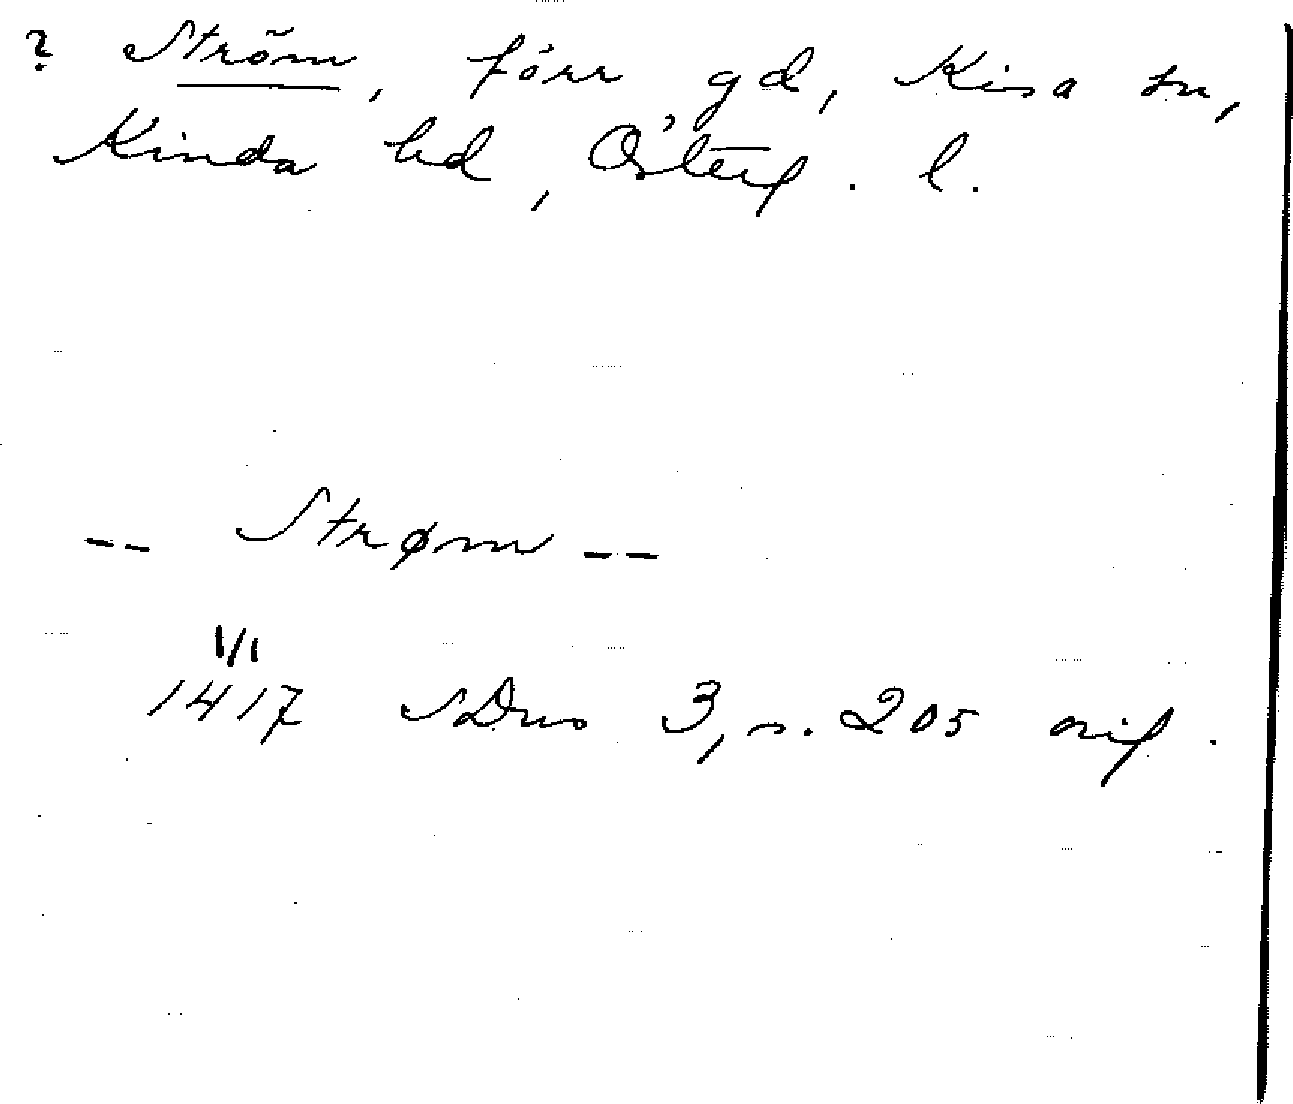 ? Ström, förr gd, Kisa sn,
Kinda hd, Österg. l.
-- Strøm --
1/1
1417 SDns 3, s. 205 orig.